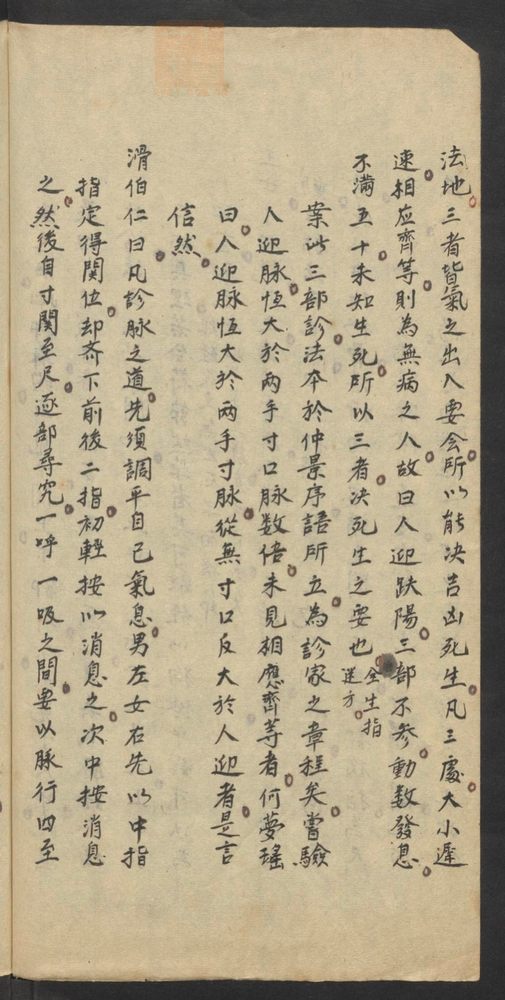 法地三者皆氣之出入要会所以能决吉凶死生凡三處大小遲
速相应齊等則為無病之人故曰人迎趺陽三部不参動数發息
不滿五十未知生死所以三者决死生之要也全生指迷方
案此三部診法本於仲景序語所立為診家之章程矣嘗驗
人迎脉恒大於兩手寸口脉数倍未見相應齊等者何夢瑤
曰人迎脉恒大於兩手寸脉從無寸口反大於人迎者是言
信然
滑伯仁曰凡診脉之道先須調平自己氣息男左女右先以中指
指定得関位却齐下前後二指初輕按以消息之次中按消息
之然後自寸関至尺逐部尋究一呼一吸之間要以脉行四至